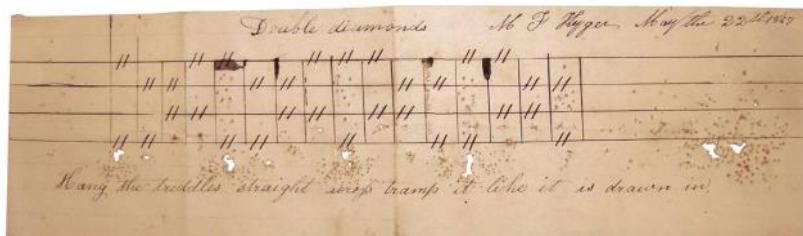 Double diamonds M F Kyger May the 22th 1867
Hang the treddles straight across tramp it like it is drawn in